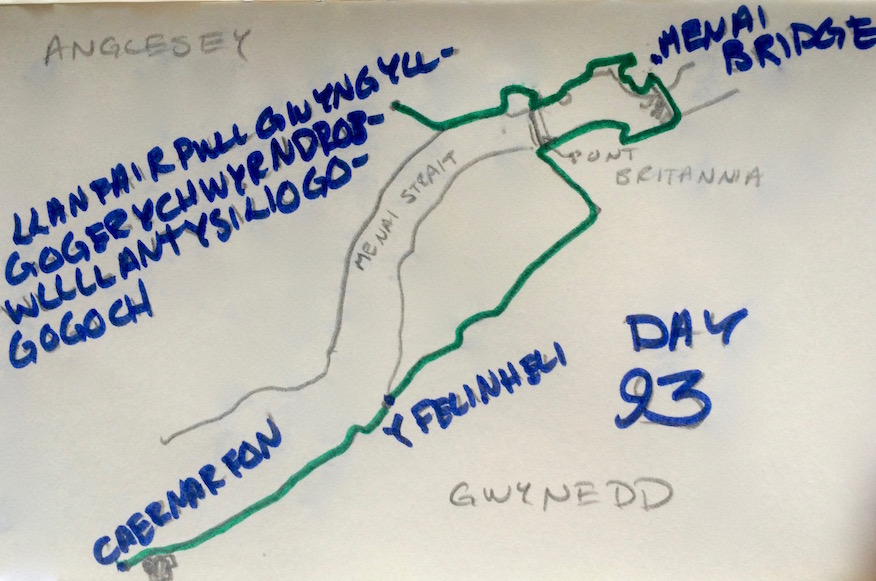 ANGLESEY
MENAI
BRIDGE
LLANFAIRPWLLGWYNGYLL-
GOGERYCHWYRNDROB-
WLLLLANTYSILIOGO-
GOGOCH
MENAI STRAIT
PONT
BRITANNIA
DAY
93
Y FELINHELI
CAERNARFON
GWYNEDD